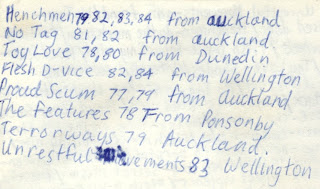 Henchmen 79 82, 83, 84 from auckland
No Tag 81, 82 from auckland.
Toy Love 78, 80 from Dunedin
Flesh D-vice 82, 84 from Wellington
Proud Scum 77, 79 from auckland
The features 78 From Ponsonby
Terrorways 79 Auckland.
Unrestful movements 83 Wellington